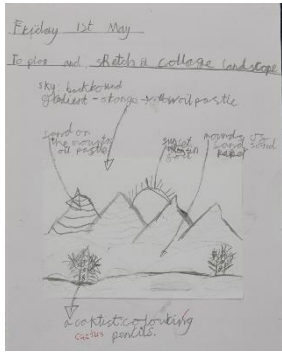 Friday 1st May
To plan and sketch a collage landscape
sky: backbound
gradient - orange → yellow oil pastle
sand on
the mounta
oil pastle
sunset
mounds of
sand sand
a caktest: colouring
cactus pencils.